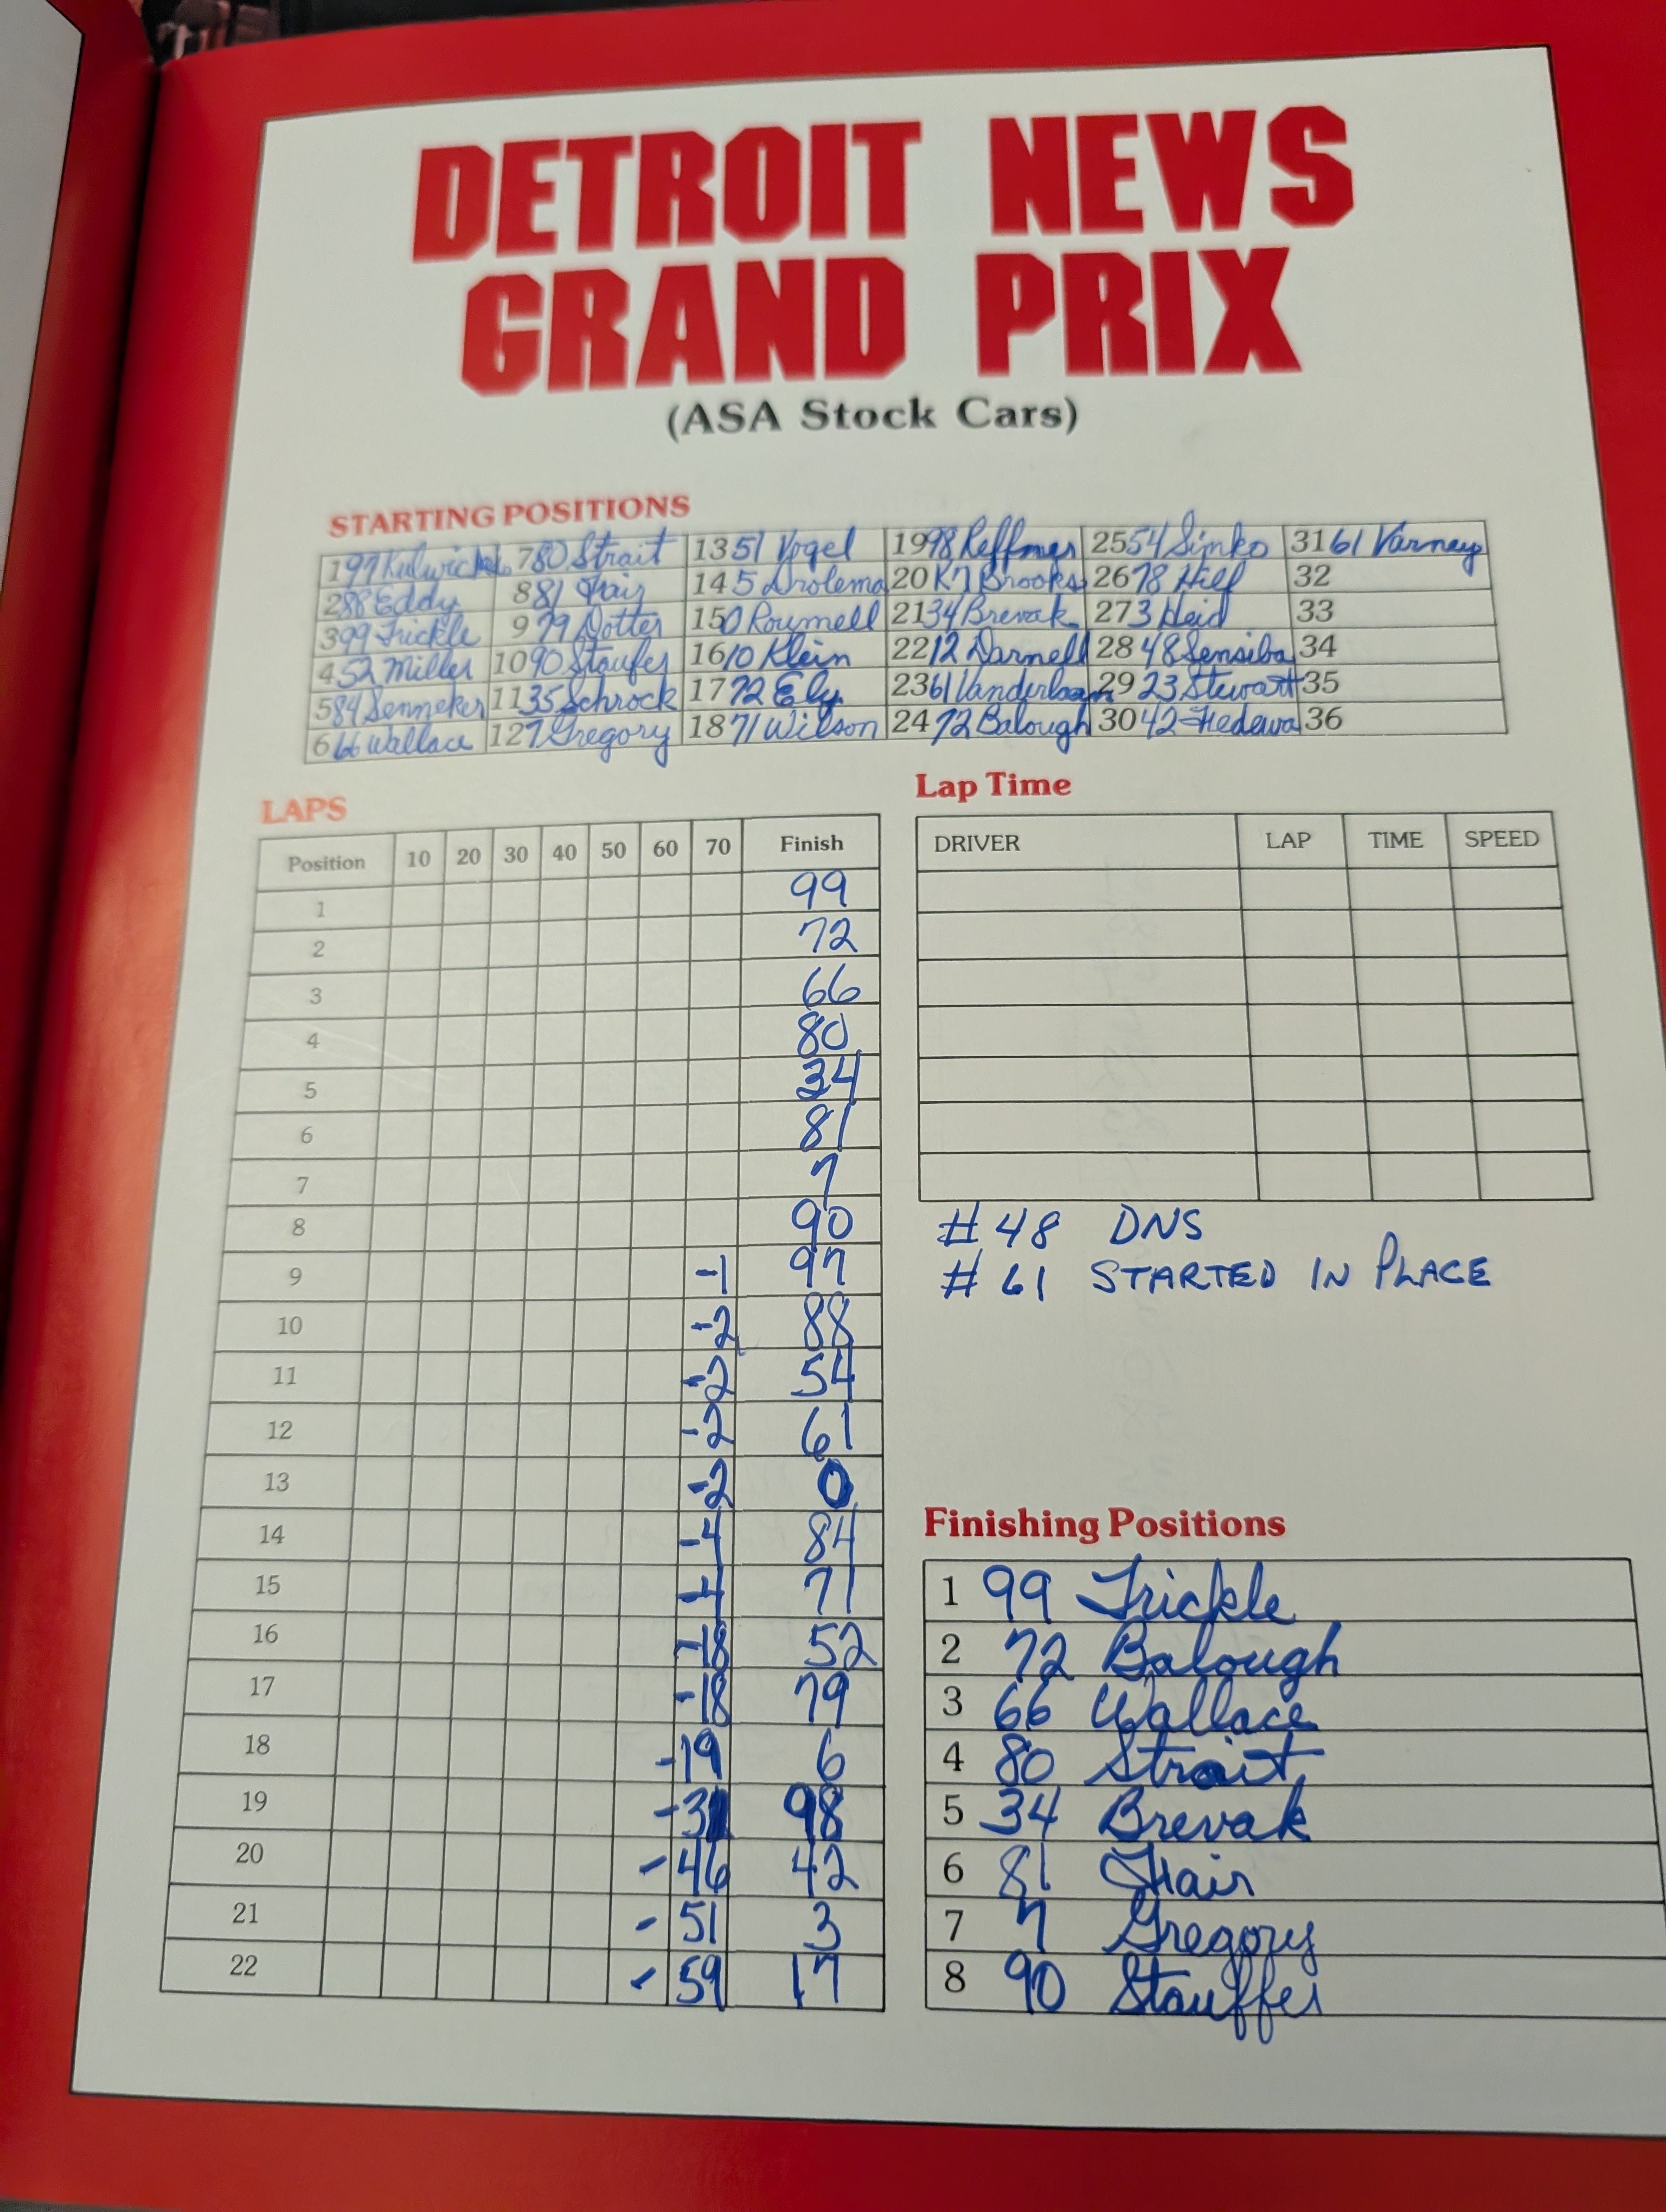 DETROIT NEWS
GRAND PRIX
(ASA Stock Cars)
STARTING POSITIONS
1 97 Kulwicki 7 80 Strait 13 51 Vogel 19 98 Reffner 25 54 Simko 31 61 Varney
2 88 Eddy 8 81 Fair 14 5 Drolema 20 K7 Brooks 26 78 Hill 32
3 99 Trickle 9 79 Dotter 15 0 Roumell 21 34 Brevak 27 3 Heid 33
4 52 Miller 10 90 Staufer 16 10 Klein 22 12 Darnell 28 48 Sensiba 34
5 84 Senneker 11 35 Schrock 17 72 Ely 23 61 Vanderlaan 29 23 Stewart 35
6 66 Wallace 12 7 Gregory 18 71 Wilson 24 72 Balough 30 42 Fedewa 36
LAPS
Position 10 20 30 40 50 60 70 Finish
1 99
2 72
3 66
4 80
5 34
6 81
7 7
8 90
9 -1 97
10 -2 88
11 -2 54
12 -2 61
13 -2 0
14 -4 84
15 -4 71
16 -18 52
17 -18 79
18 -19 6
19 98
20 -46 42
21 -51 3
22 -59 17
Lap Time
DRIVER LAP TIME SPEED
# 48 DNS
# 61 STARTED IN PLACE
Finishing Positions
1 99 Trickle
2 72 Balough
3 66 Wallace
4 80 Strait
5 34 Brevak
6 81 Fair
7 7 Gregory
8 90 Stauffer